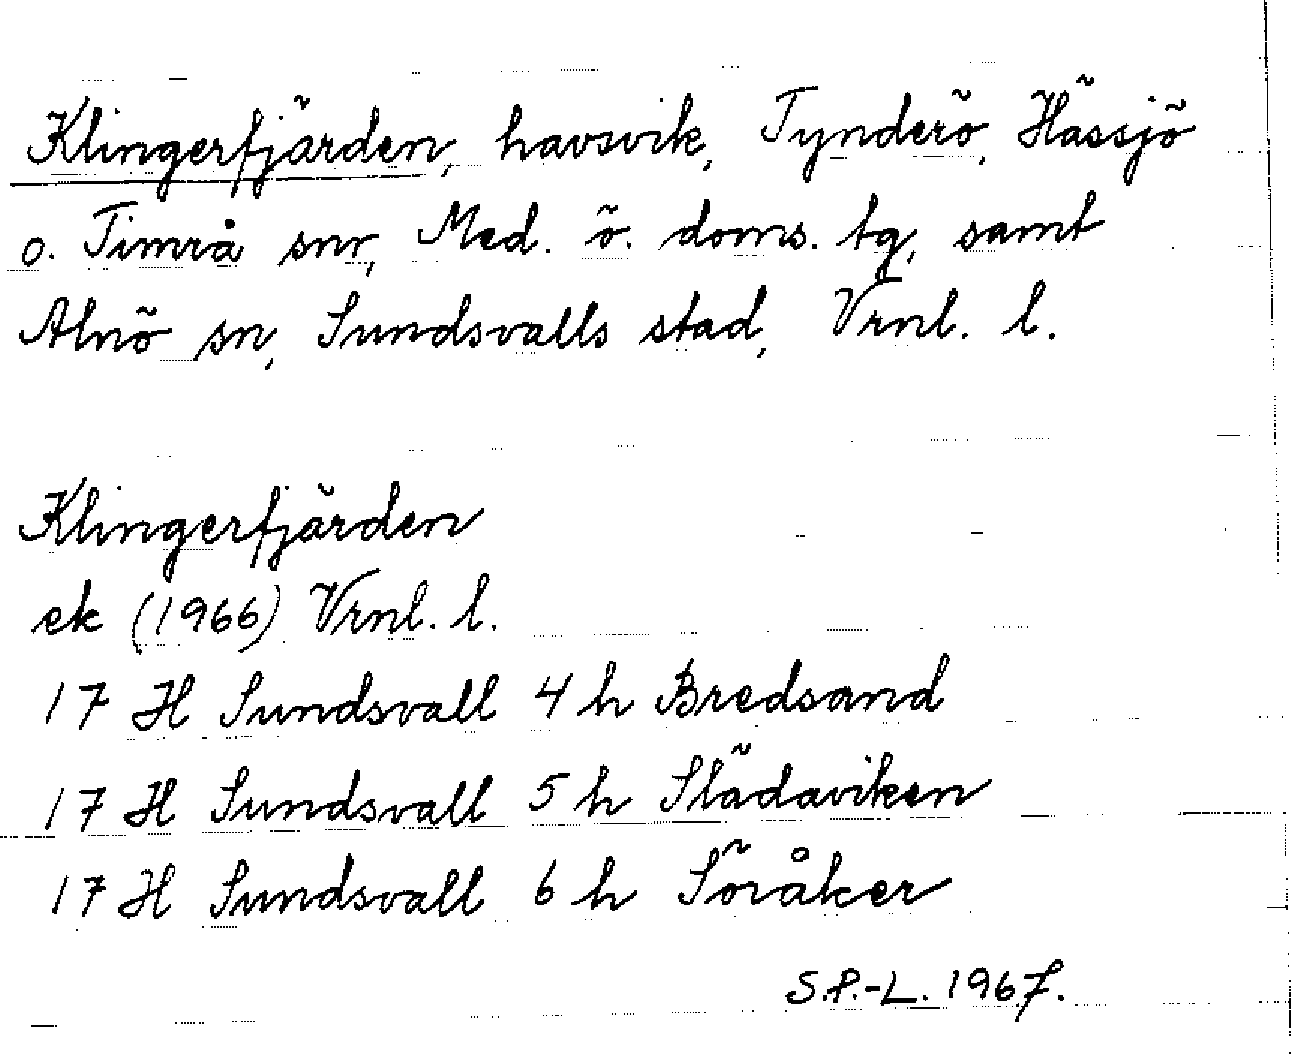 Klingerfjärden, havsvik, Tynderö, Hässjö
o. Timrå snr, Med. ö. doms. tg, samt
Alnö sn, Sundsvalls stad, Vrnl. l.
Klingerfjärden
ek (1966) Vrnl. l.
17 H Sundsvall 4 h Bredsand
17 H Sundsvall 5 h Slädaviken
17 H Sundsvall 6 h Söråker
S.P.-L. 1967.